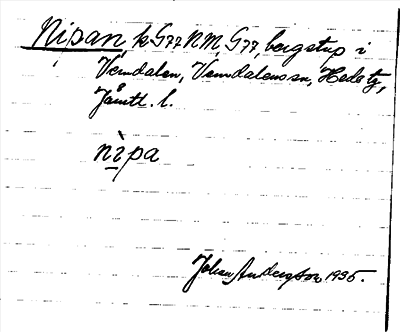 Nipan, k G77 NM, G77, bergstup i
Vemdalen, Vemdalens sn, Hede tg,
Jämtl. l.
nìpa
Johan Anderson 1935.